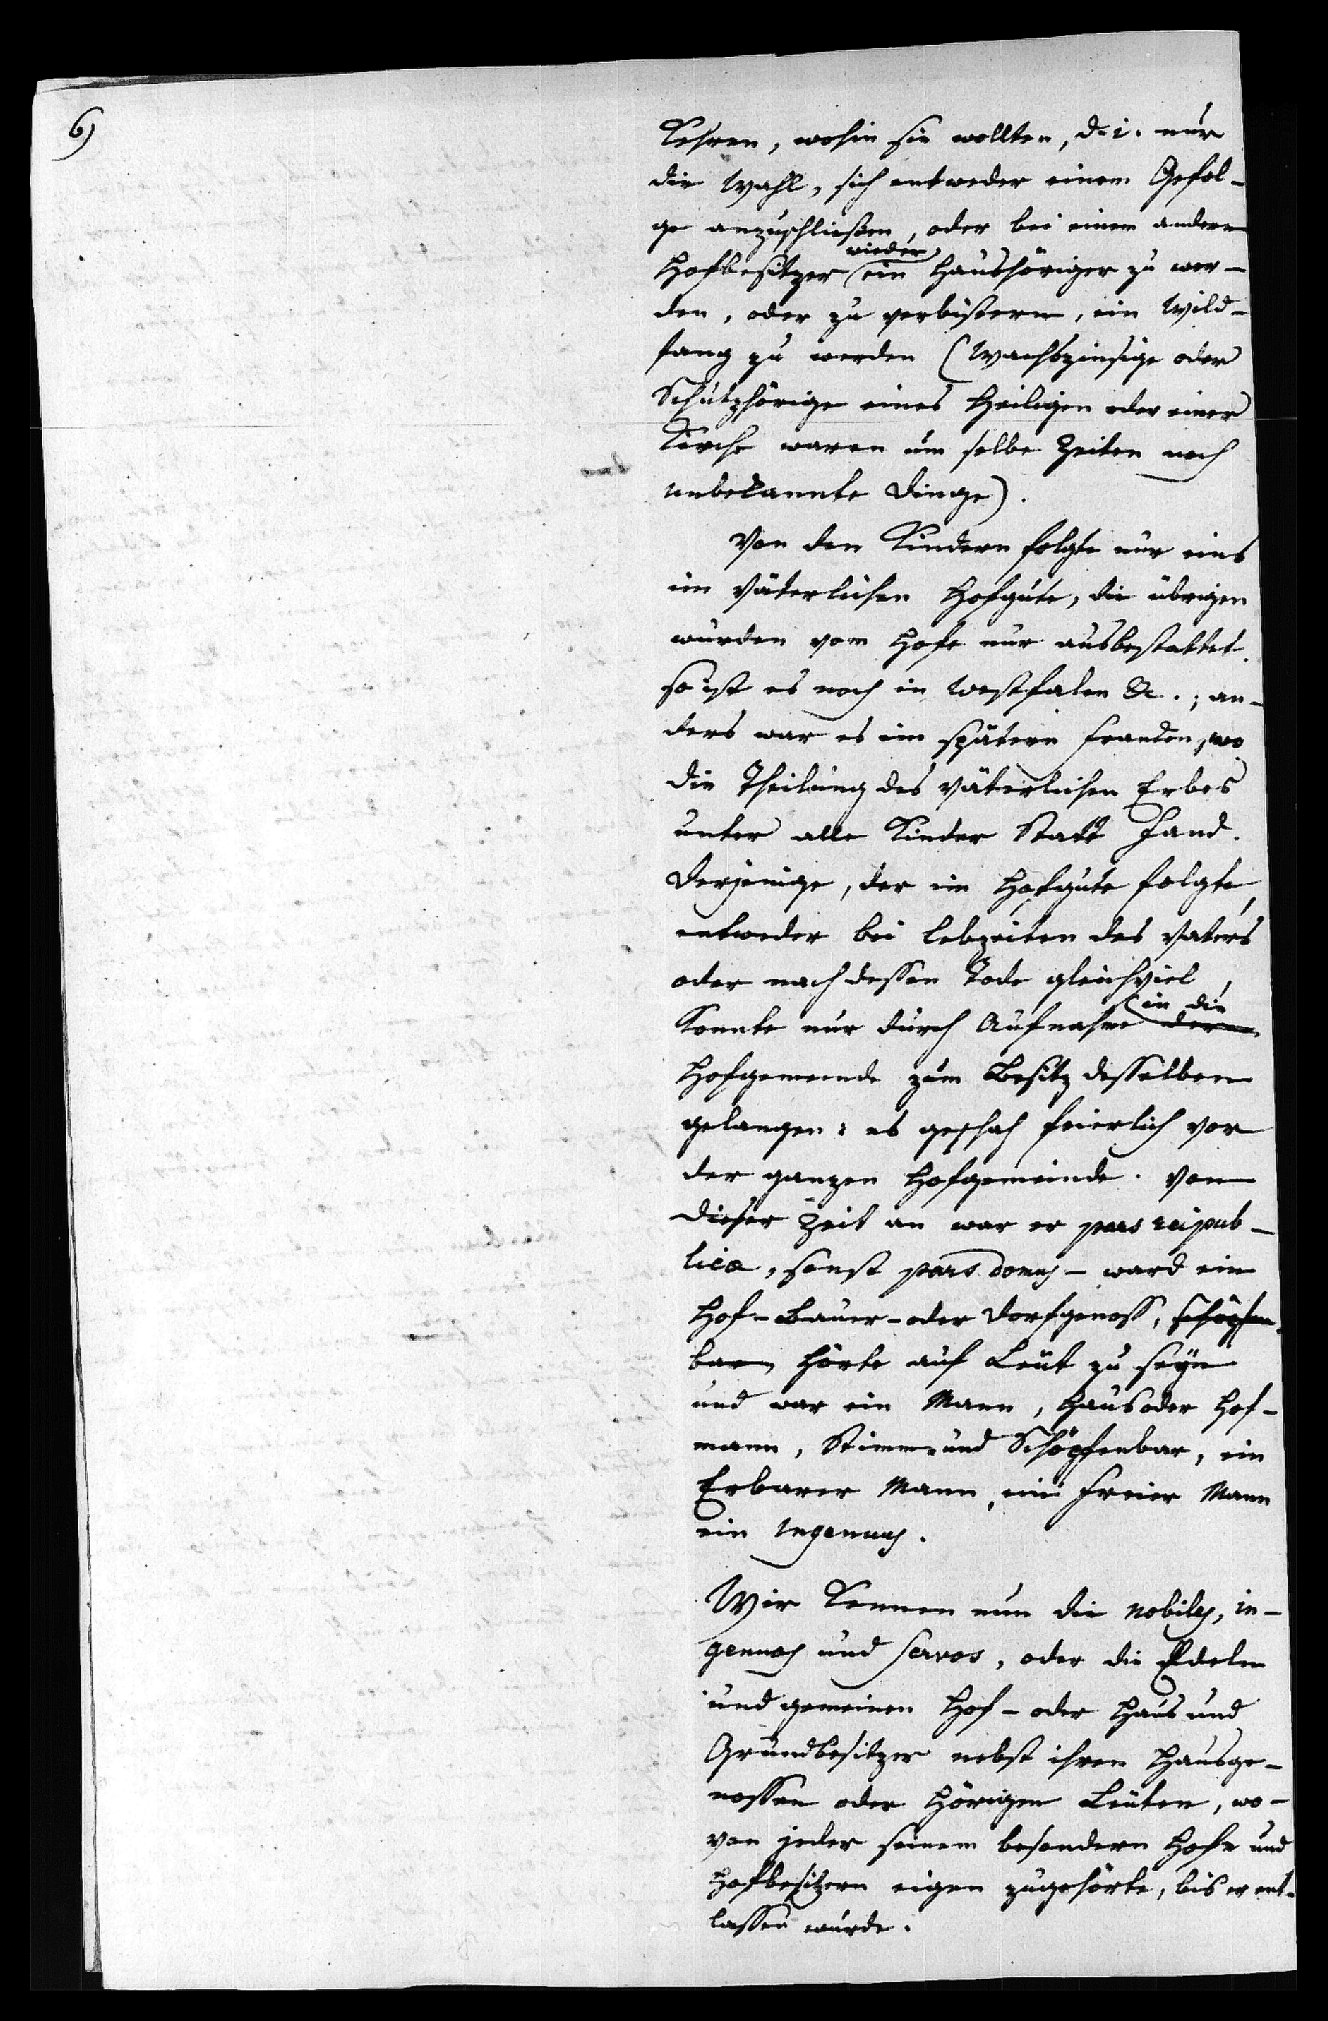 6)
Kehren, wohin sie wollten, d. i. nur
die Wahl, sich entweder einem Gefol-
ge anzuschließen, oder bei einem andern
wieder
Hofbesitzer ein Haushöriger zu wer-
den, oder zu verbistern, ein Wild-
fang zu werden (Wachszinsige oder
Schutzhörige eines Heiligen oder einer
Kirche waren um selbe Zeiten noch
unbekannte Dinge).
Von den Kindern folgte nur eins
im Väterlichen Hofgute, die übrigen
wurden vom Hofe nur ausbestattet.
so ist es noch in Westfalen &c.; an-
ders war es im spätern Franken, wo
die Theilung des Väterlichen Erbes
unter alle Kinder Statt fand.
Derjenige, der im Hofgute folgte,
entweder bei Lebzeiten des Vaters
oder nach dessen Tode gleichviel,
in die
Konnte nur durch Aufnahme
Hofgemeinde zum Besitz desselben
gelangen: es geschah feierlich vor
der ganzen Hofgemeinde. Von
dieser Zeit an war er pars reipub-
licæ, sonst pars domus – ward ein
Hof- Bauer- oder Dorfgenoss, schöpfen-
bar, hörte auf Leut zu seyn
und war ein Mann, Haus oder Hof-
mann, Stimm- und Schöpfenbar, ein
Erbarer Mann, ein freier Mann
ein Ingenuus.
Wir Kennen nun die nobiles, in-
genuos und servos, oder die Edelen
und gemeinen Hof- oder Haus und
Grundbesitzer nebst ihren Hausge-
nossen oder Hörigen Leuten, wo-
von jeder seinem besondern Hofe und
Hofbesitzern eigen zugehörte, bis er ent-
lassen wurde.